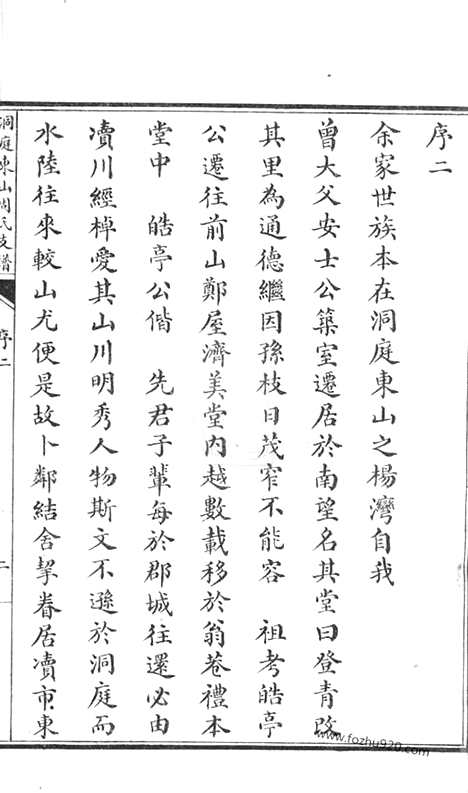 序二
余家世族本在洞庭東山之楊灣自我
曾大父安士公築室遷居於南望名其堂曰登青改
其里為通德繼因孫枝日茂窄不能容　祖考皓亭
公遷往前山鄭屋濟美堂內越數載移於翁巷禮本
堂中　皓亭公偕　先君子輩每於郡城往還必由
瀆川經棹愛其山川明秀人物斯文不遜於洞庭而
水陸往來較山尤便是故卜鄰結舍挈眷居瀆市東
洞庭東山周氏支譜
序二
二
www.fozhu920.com